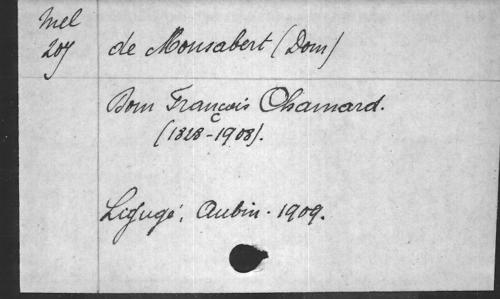 Mel
207
de Monsabert (Dom)
Dom François Chamard.
(1828-1908).
Ligugé, Aubin. 1909.